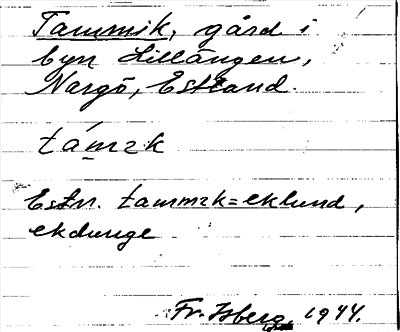 Tammik, gård i
byn Lillängen,
Nargö, Estland.
támɪk
Estn. tammɪk = eklund,
ekdunge
Fr. Isberg 1944.